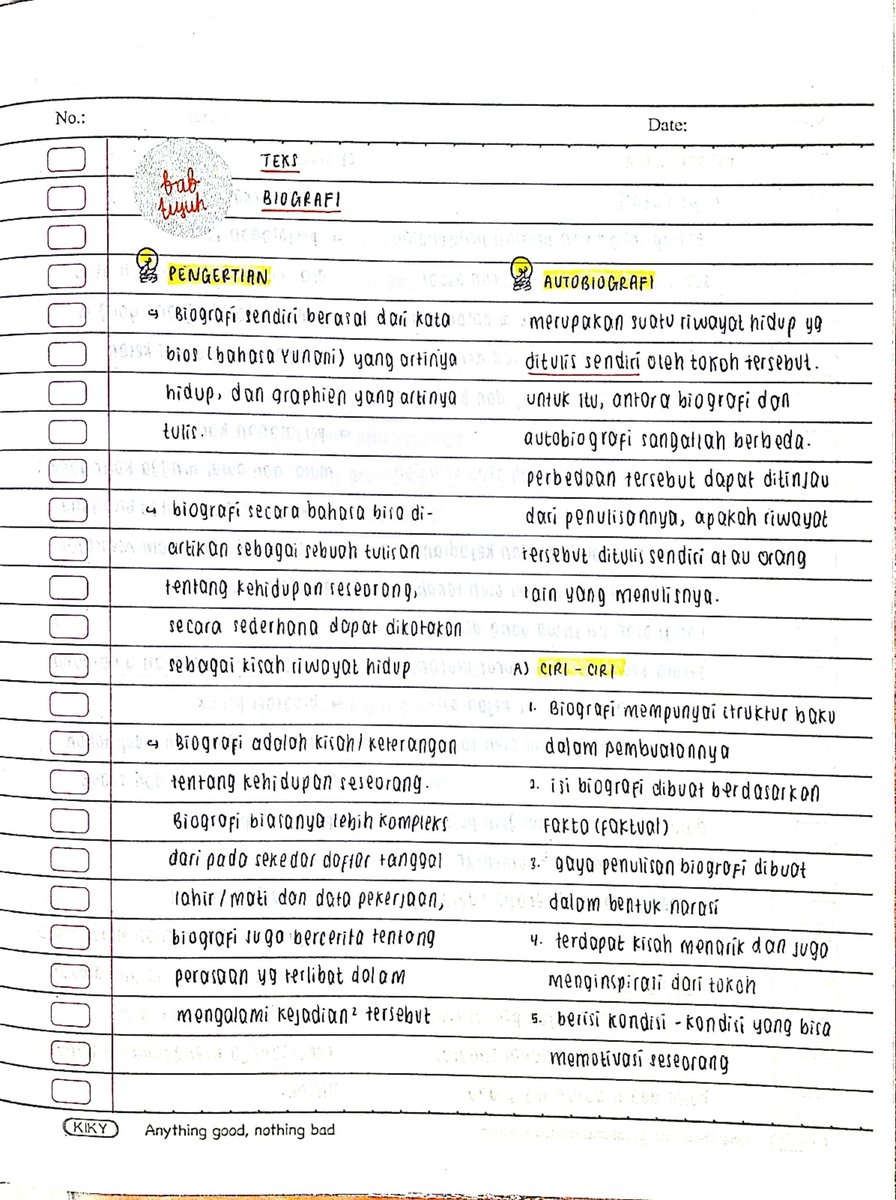 No.:
Date:
bab
tujuh
TEKS
BIOGRAFI
PENGERTIAN
↪ Biografi sendiri berasal dari kata
bios (bahasa Yunani) yang artinya
hidup, dan graphien yang artinya
tulis.
↪ biografi secara bahasa bisa di-
artikan sebagai sebuah tulisan
tentang kehidupan seseorang,
secara sederhana dapat dikatakan
sebagai kisah riwayat hidup
↪ Biografi adalah kisah / keterangan
tentang kehidupan seseorang.
Biografi biasanya lebih kompleks
dari pada sekedar daftar tanggal
lahir / mati dan data pekerjaan,
biografi juga bercerita tentang
perasaan yg terlibat dalam
mengalami kejadian² tersebut
AUTOBIOGRAFI
merupakan suatu riwayat hidup yg
ditulis sendiri oleh tokoh tersebut.
untuk itu, antara biografi dan
autobiografi sangatlah berbeda.
perbedaan tersebut dapat ditinjau
dari penulisannya, apakah riwayat
tersebut ditulis sendiri atau orang
lain yang menulisnya.
A) CIRI - CIRI
1. Biografi mempunyai struktur baku
dalam pembuatannya
2. isi biografi dibuat berdasarkan
fakta (faktual)
3. gaya penulisan biografi dibuat
dalam bentuk narasi
4. terdapat kisah menarik dan juga
menginspirasi dari tokoh
5. berisi kondisi - kondisi yang bisa
memotivasi seseorang
KIKY
Anything good, nothing bad